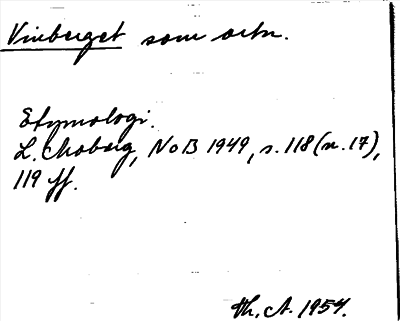 Vinberget som ortn.
Etymologi.
L. Moberg, NoB 1949, s. 118 (n. 17),
119 ff.
Th, A. 1954.